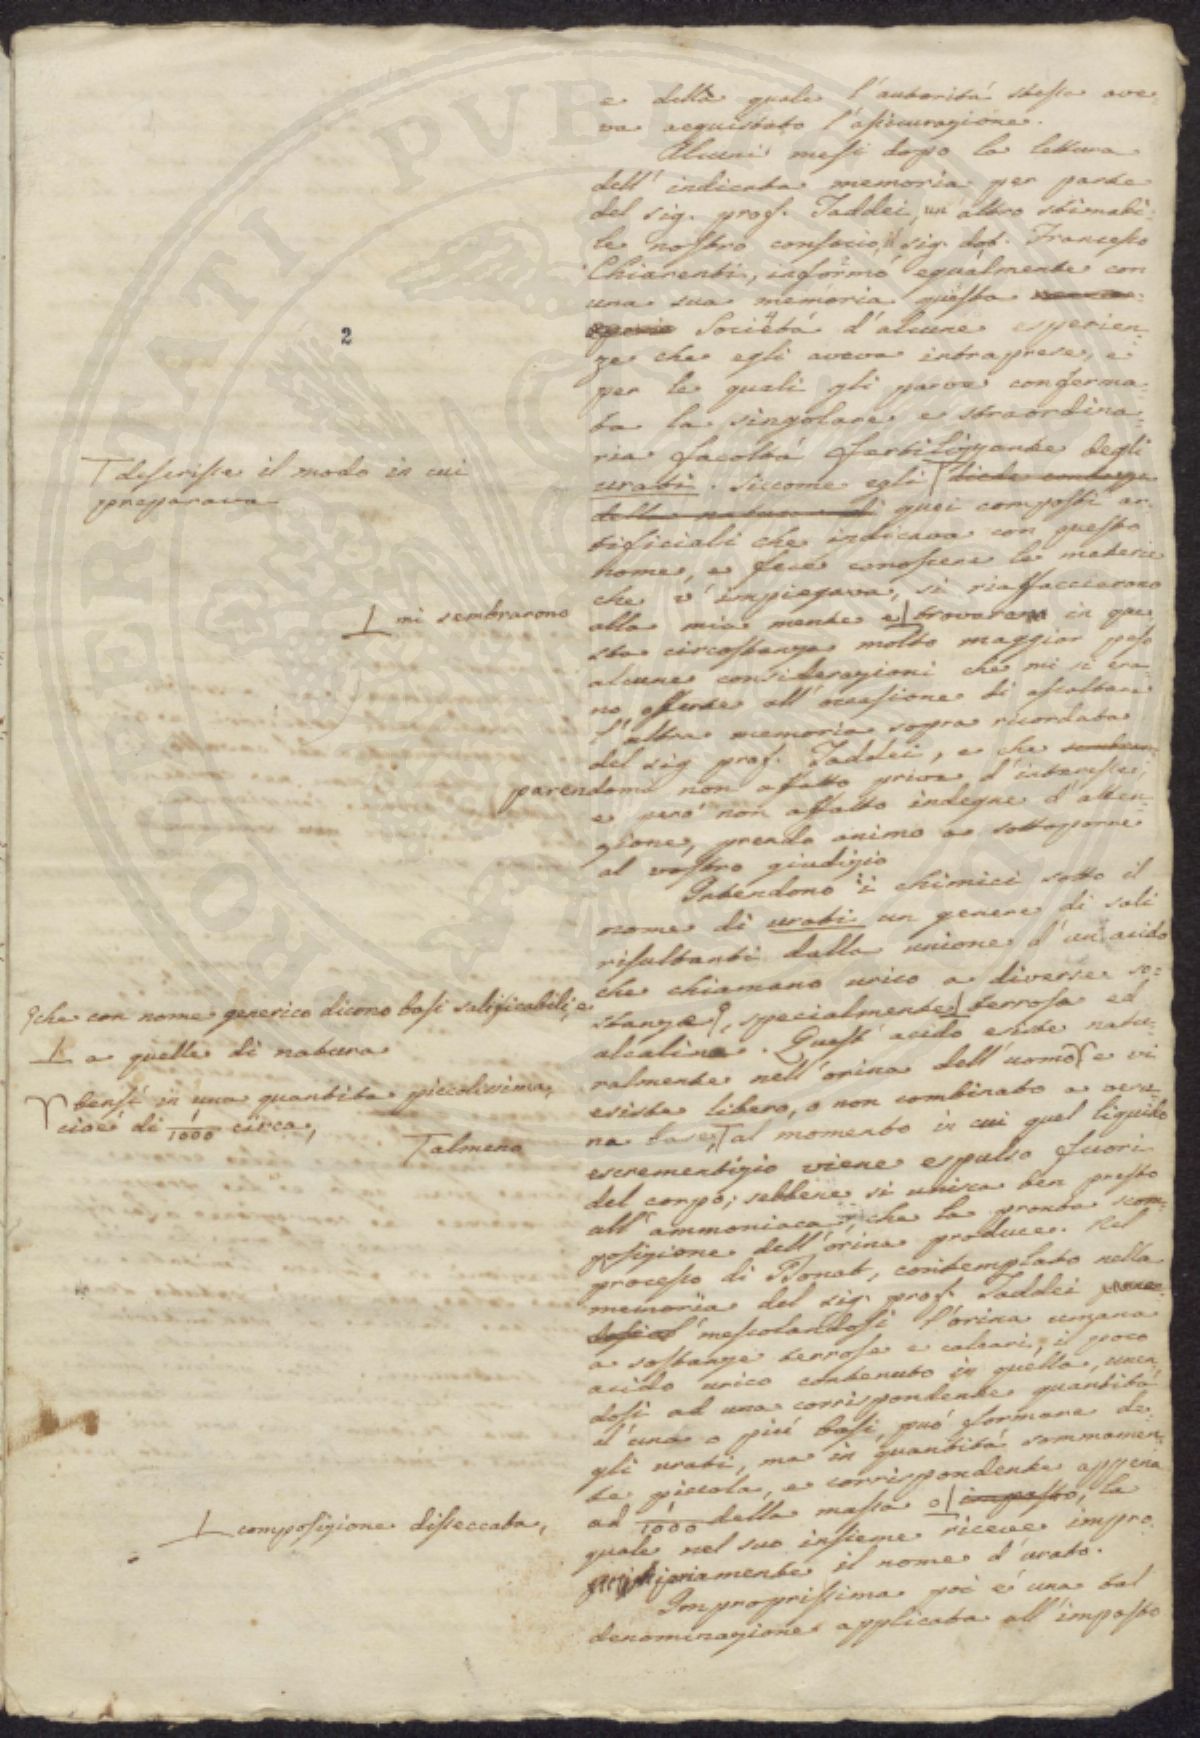 e della quale l'autorità stessa ave-
va acquistato l'assicurazione.
Alcuni mesi dopo la lettura
dell'indicata memoria per parte
del sig. prof. Taddei, un altro stimabi-
le nostro consocio, il sig. dot. Francesco
Chiarenti, informò egualmente con
una sua memoria questa
Società d'alcune esperien-
ze che egli aveva intraprese, e
per le quali gli parve conferma-
ta la singolare e straordina-
ria facoltà fertilizzante degli
2
urati. Siccome egli
T descrisse il modo in cui
preparava
quei composti ar-
tificiali che indicava con questo
nome, e fece conoscere le materie
che v'impiegava, si riaffacciarono
alla mia mente e trovarono in que-
⊥ mi sembrarono
sta circostanza molto maggior peso
alcune considerazioni che mi si era-
no offerte all'occasione di ascoltare
l'altra memoria sopra ricordata
del sig. prof. Taddei, e che
parendomi non affatto prive d'interesse,
e però non affatto indegne d'atten-
zione, prendo animo a sottoporre
al vostro giudizio
Intendono i chimici sotto il
nome di urati un genere di sali
risultanti dalla unione d'un acido
che chiamano urico a diverse so-
stanze, specialmente terrosa ed
che con nome generico dicono basi salificabili, e
⊥ a quelle di natura
alcalina. Quest'acido esiste natu-
ralmente nell'orina dell'uomo e vi
bensì in una quantità piccolissima,
cioè di 1/1000 circa,
esiste libero, o non combinato a veru-
na base, al momento in cui quel liquido
T almeno
escrementizio viene espulso fuori
del corpo; sebbene si unisca ben presto
all'ammoniaca, che la pronta scom-
posizione dell'orina produce. Nel
processo di Donat, contemplato nella
memoria del sig. prof. Taddei
mescolandosi l'orina umana
a sostanze terrose e calcari, il poco
acido urico contenuto in quella, unen-
dosi ad una corrispondente quantità
d'una o più basi, può formare de-
gli urati, ma in quantità sommamen-
te piccola, e corrispondente appena
ad 1/1000 della massa o impasto, la
⊥ composizione disseccata,
quale nel suo insieme riceve impro-
priamente il nome d'urato.
Impropriissima poi è una tal
denominazione applicata all'impasto